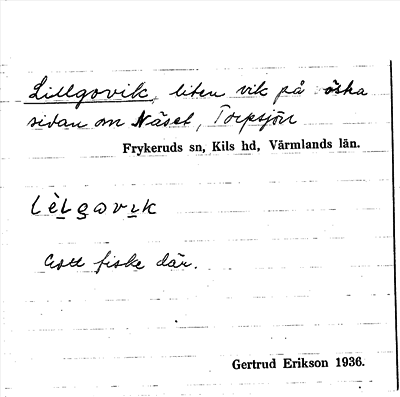 Lillgovik, liten vik på östra
sidan om Näset, Torpsjön
Frykeruds sn, Kils hd, Värmlands län.
Gott fiske där.
Gertrud Erikson 1936.